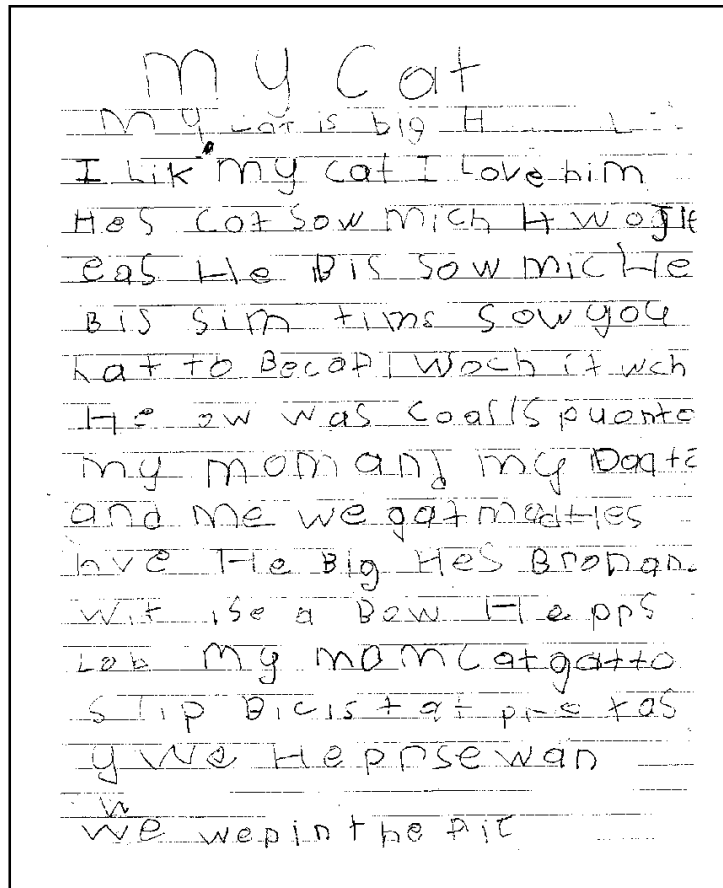 My Cat
My cat is big H
I Lik my cat I Love him
Hes Cot Sow mich H
eas He Bis Sow mic He
Bis sim tims sow you
hat to Becaf I woch it wch
He ow was coalls puonto
my mom and my
and me we gat mad
hve He Big Hes Bronan
wit ise a Bow He pps
Lob my mom Cat gatto
slip Bicis tat pre
y we He prse wan
we wep in the